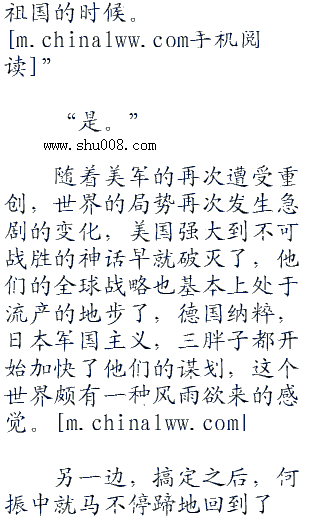 祖国的时候。
[m.china1ww.com手机阅
读]”
“是。”
www.shu008.com
随着美军的再次遭受重
创，世界的局势再次发生急
剧的变化，美国强大到不可
战胜的神话早就破灭了，他
们的全球战略也基本上处于
流产的地步了，德国纳粹，
日本军国主义，三胖子都开
始加快了他们的谋划，这个
世界颇有一种风雨欲来的感
觉。[m.china1ww.com|
另一边，搞定之后，何
振中就马不停蹄地回到了